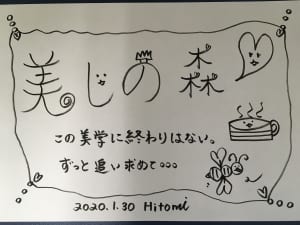 美じの森
この美学に終わりはない。
ずっと追い求めて・・・
2020.1.30 Hitomi